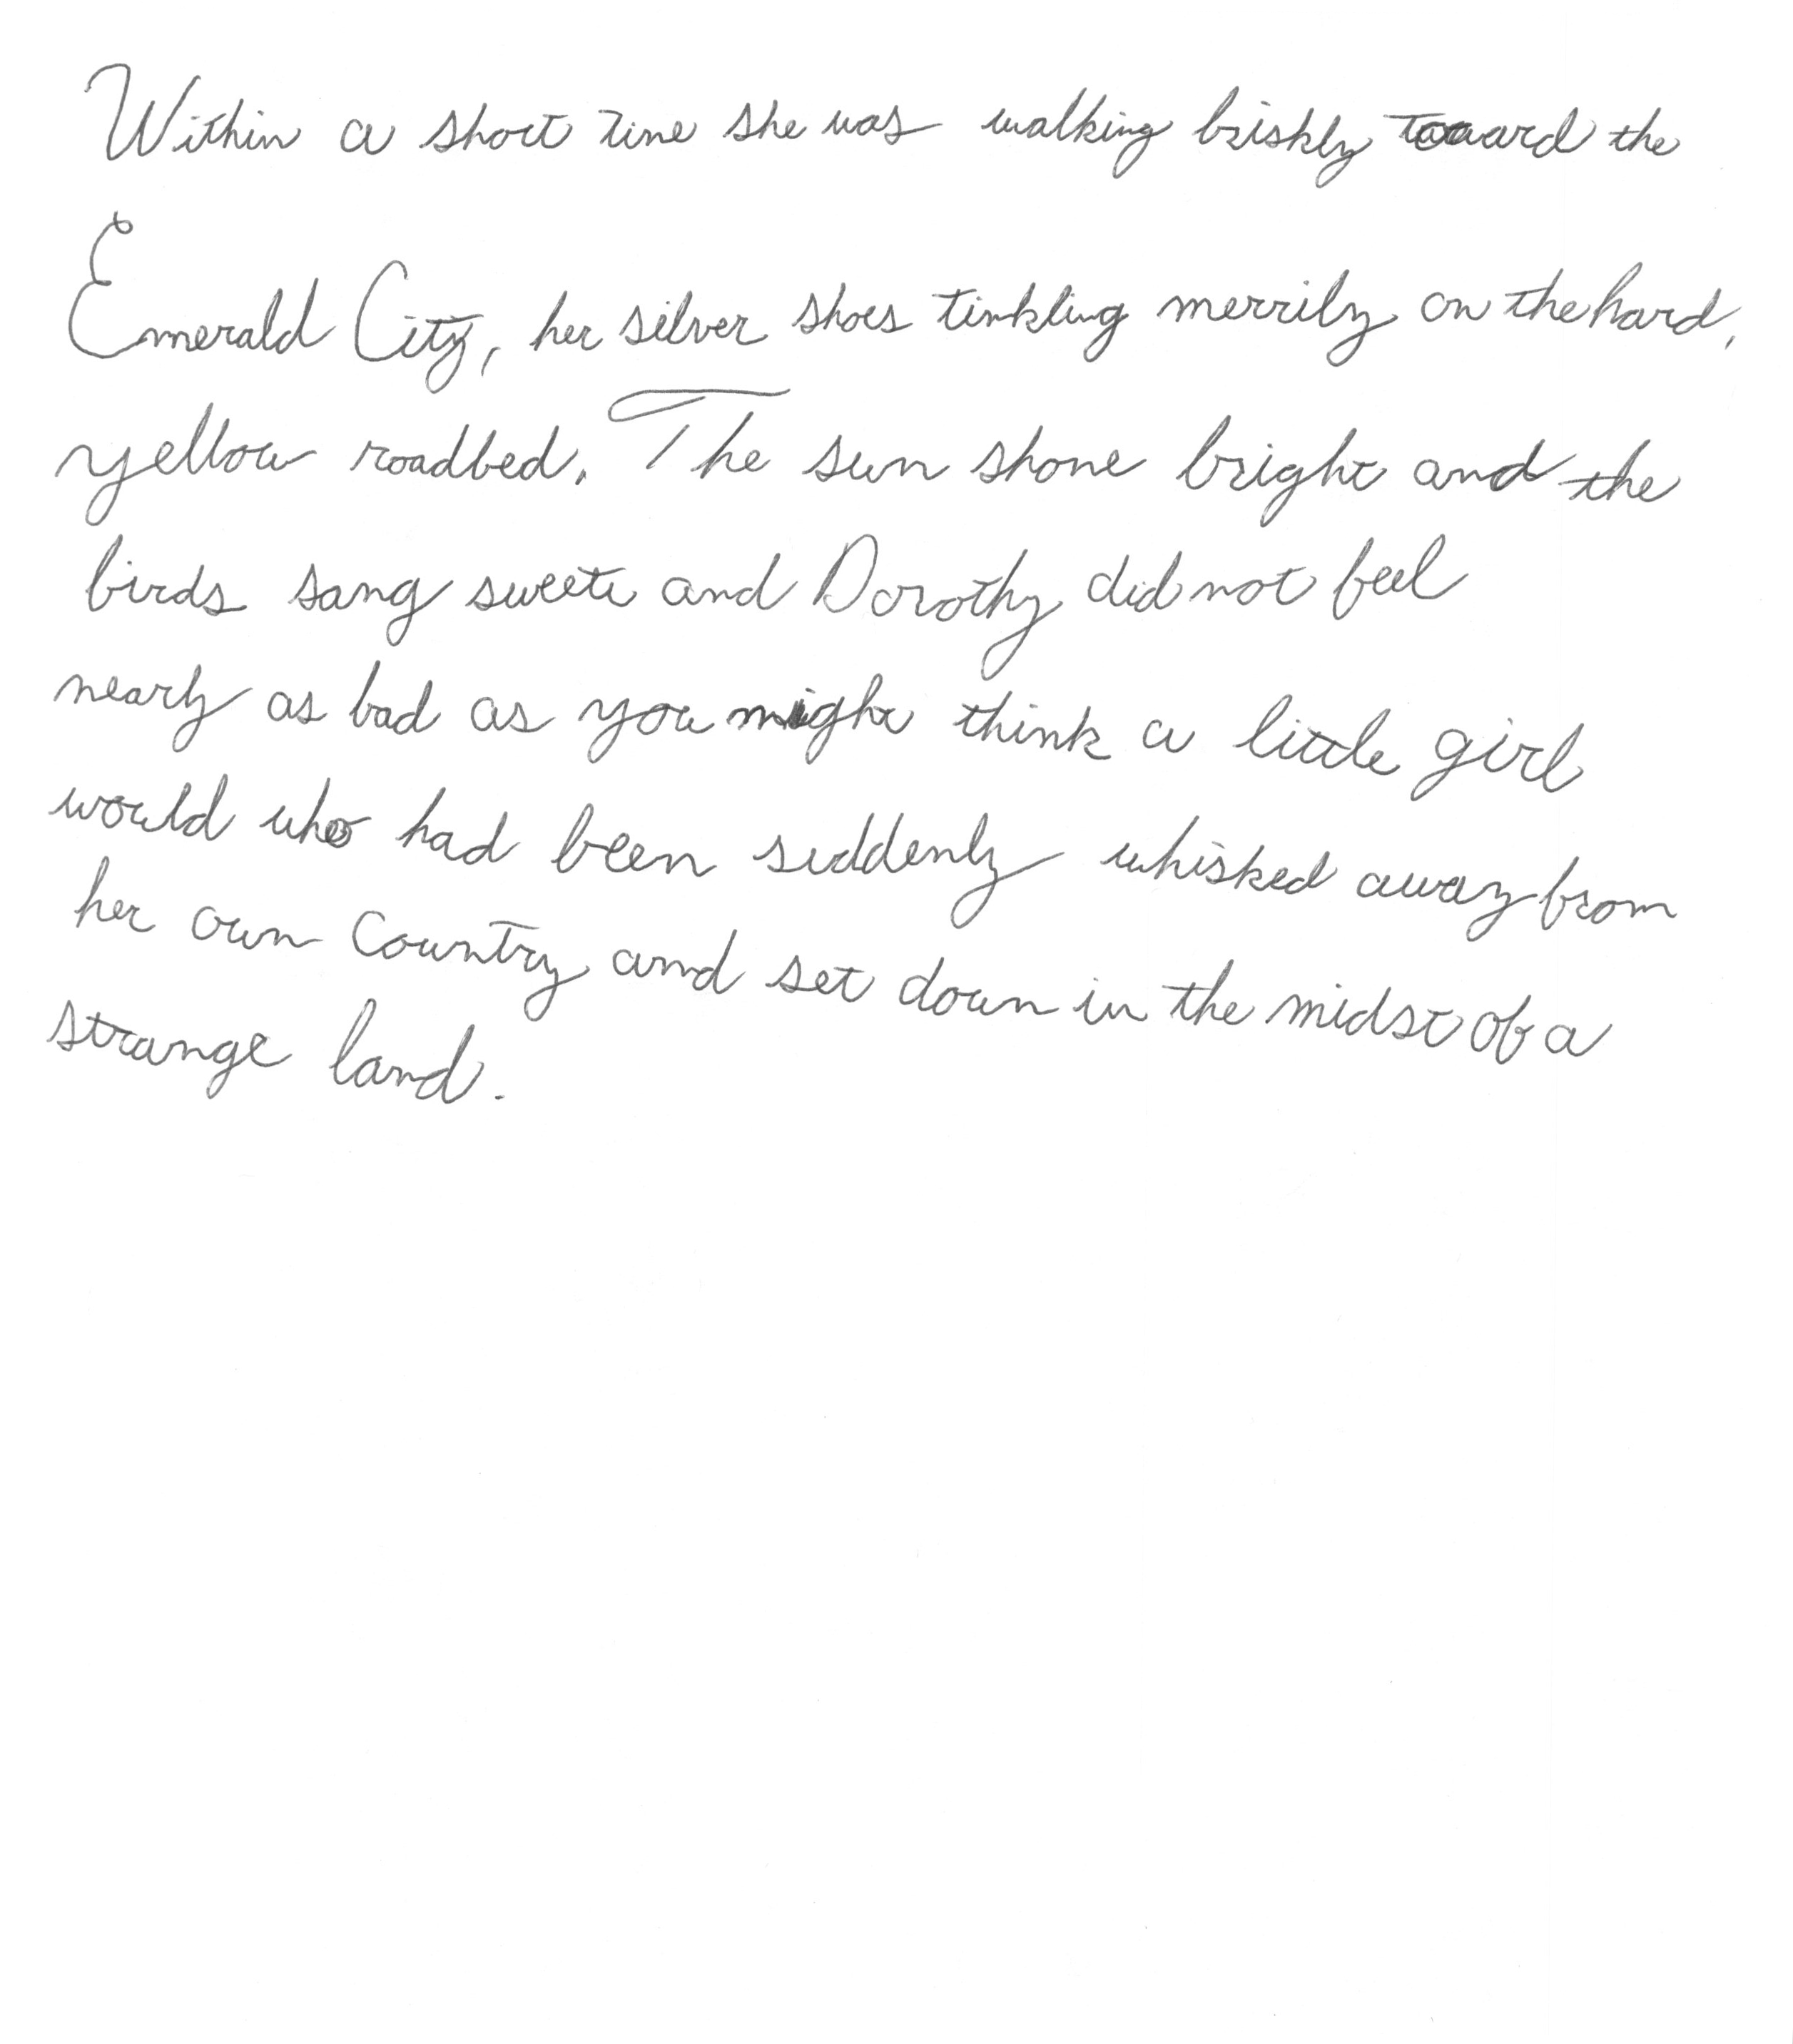 Within a short time she was walking briskly toward the
Emerald City, her silver shoes tinkling merrily on the hard,
yellow roadbed. The sun shone bright and the
birds sang sweet and Dorothy did not feel
nearly as bad as you might think a little girl
would who had been suddenly whisked away from
her own country and set down in the midst of a
strange land.